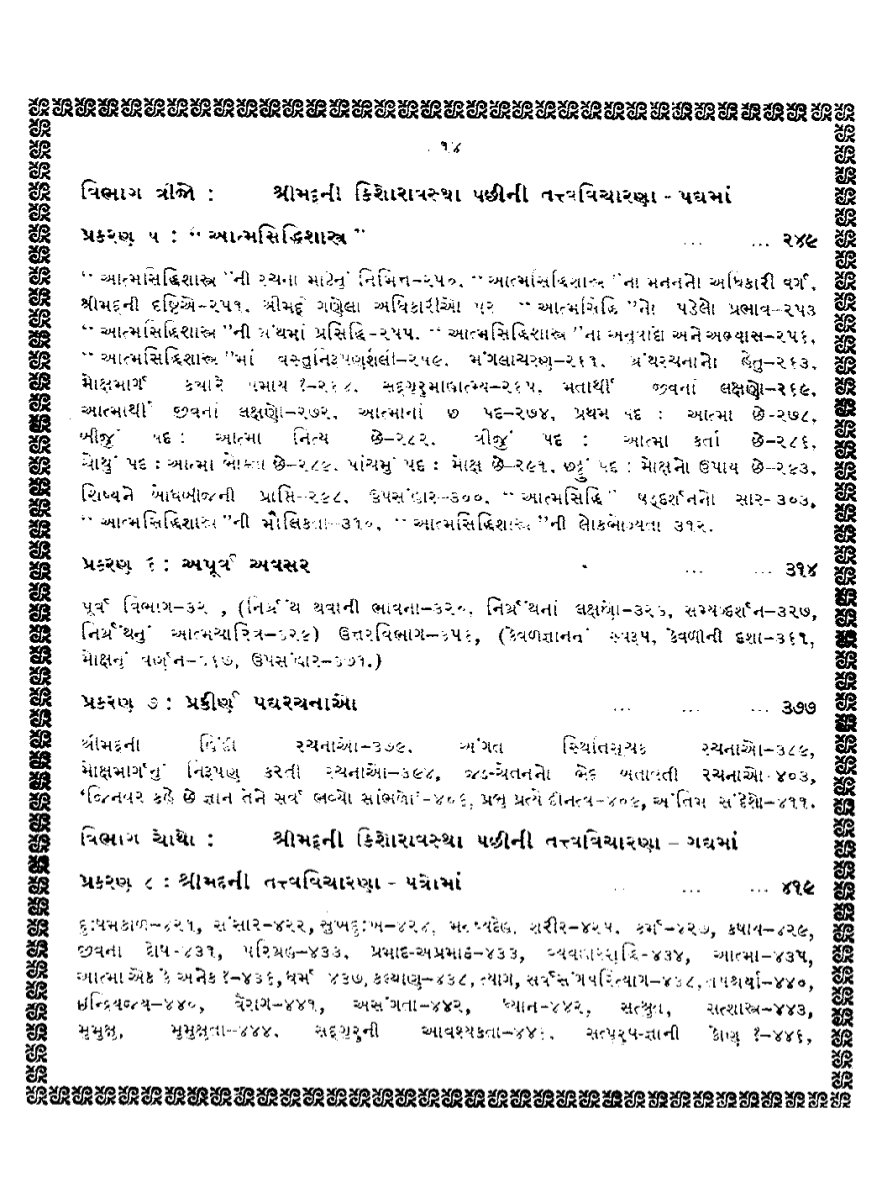 ૧૪
વિભાગ ત્રીજો : શ્રીમદ્દની કિશોરાવસ્થા પછીની તત્ત્વવિચારણા - પદ્યમાં
પ્રકરણ ૫ : “ આત્મસિદ્ધિશાસ્ત્ર ” ... ... ૨૪૯
“ આત્મસિદ્ધિશાસ્ત્ર ”ની રચના માટેનું નિમિત્ત-૨૫૦, “ આત્મસિદ્ધિશાસ્ત્ર ”ના મનનનો અધિકારી વર્ગ,
શ્રીમદ્દની દષ્ટિએ-૨૫૧, શ્રીમદ્દે ગણેલા અધિકારીઓ પર “ આત્મસિદ્ધિ ”નો પડેલો પ્રભાવ-૨૫૩
“ આત્મસિદ્ધિશાસ્ત્ર ”ની ગ્રંથમાં પ્રસિદ્ધિ-૨૫૫, “ આત્મસિદ્ધિશાસ્ત્ર ”ના અનુવાદો અને અભ્યાસ-૨૫૬,
“ આત્મસિદ્ધિશાસ્ત્ર ”માં વસ્તુનિરૂપણશૈલી-૨૫૯, મંગલાચરણ-૨૬૧, ગ્રંથરચનાનો હેતુ-૨૬૩,
મોક્ષમાર્ગ કયારે પમાય ?-૨૬૪, સદ્દગુરુમાહાત્મ્ય-૨૬૫, મતાર્થી જીવનાં લક્ષણો-૨૬૯,
આત્માર્થી જીવનાં લક્ષણો-૨૭૨, આત્માનાં છ પદ-૨૭૪, પ્રથમ પદ : આત્મા છે-૨૭૮,
બીજું પદ : આત્મા નિત્ય છે-૨૮૨, ત્રીજું પદ : આત્મા કર્તા છે-૨૮૬,
ચોથું પદ : આત્મા ભોક્તા છે-૨૮૯, પાંચમું પદ : મોક્ષ છે-૨૯૧, છઠ્ઠું પદ : મોક્ષનો ઉપાય છે-૨૯૩,
શિષ્યને બોધબીજની પ્રાપ્તિ-૨૯૮, ઉપસંહાર-૩૦૦, “ આત્મસિદ્ધિ ” ષડ્દર્શનનો સાર-૩૦૩,
“ આત્મસિદ્ધિશાસ્ત્ર ”ની મૌલિકતા-૩૧૦, “ આત્મસિદ્ધિશાસ્ત્ર ”ની લોકભોગ્યતા ૩૧૨.
પ્રકરણ ૬ : અપૂર્વ અવસર ... ... ૩૧૪
પૂર્વ વિભાગ-૩૨ , (નિર્ગ્રંથ થવાની ભાવના-૩૨૦, નિર્ગ્રંથનાં લક્ષણો-૩૨૬, સમ્યગ્દર્શન-૩૨૭,
નિર્ગ્રંથનું આત્મચારિત્ર-૩૨૯) ઉત્તરવિભાગ-૩૫૬, (કેવળજ્ઞાનનું સ્વરૂપ, કેવળીની દશા-૩૬૧,
મોક્ષનું વર્ણન-૩૬૭, ઉપસંહાર-૩૭૧.)
પ્રકરણ ૭ : પ્રકીર્ણ પદ્યરચનાઓ ... ... ... ૩૭૭
શ્રીમદ્દની હિંદી રચનાઓ-૩૭૯, અંગત સ્થિતિસૂચક રચનાઓ-૩૮૯,
મોક્ષમાર્ગનું નિરૂપણ કરતી રચનાઓ-૩૯૪, જડ-ચેતનનો ભેદ બતાવતી રચનાઓ-૪૦૩,
‘જિનવર કહે છે જ્ઞાન તેને સર્વ ભવ્યો સાંભળો’-૪૦૬, પ્રભુ પ્રત્યે દીનત્વ-૪૦૯, અંતિમ સંદેશો-૪૧૧.
વિભાગ ચોથો : શ્રીમદ્દની કિશોરાવસ્થા પછીની તત્ત્વવિચારણા – ગદ્યમાં
પ્રકરણ ૮ : શ્રીમદ્દની તત્ત્વવિચારણા - પત્રોમાં ... ... ૪૧૯
દુઃષમકાળ-૪૨૧, સંસાર-૪૨૨, સુખદુઃખ-૪૨૪, મનુષ્યદેહ, શરીર-૪૨૫, કર્મ-૪૨૭, કષાય-૪૨૯,
જીવના દોષ-૪૩૧, પરિગ્રહ-૪૩૩, પ્રમાદ-અપ્રમાદ-૪૩૩, વ્યવહારશુદ્ધિ-૪૩૪, આત્મા-૪૩૫,
આત્મા એક કે અનેક ?-૪૩૬, ધર્મ ૪૩૭, કલ્યાણ-૪૩૮, ત્યાગ, સર્વસંગપરિત્યાગ-૪૩૮, તપશ્ચર્યા-૪૪૦,
ઇન્દ્રિયજય-૪૪૦, વૈરાગ-૪૪૧, અસંગતા-૪૪૨, ધ્યાન-૪૪૨, સત્શ્રુત, સત્શાસ્ત્ર-૪૪૩,
મુમુક્ષુ, મુમુક્ષુતા-૪૪૪, સદ્દગુરુની આવશ્યકતા-૪૪ , સત્પુરુષ-જ્ઞાની કોણ ?-૪૪૬,